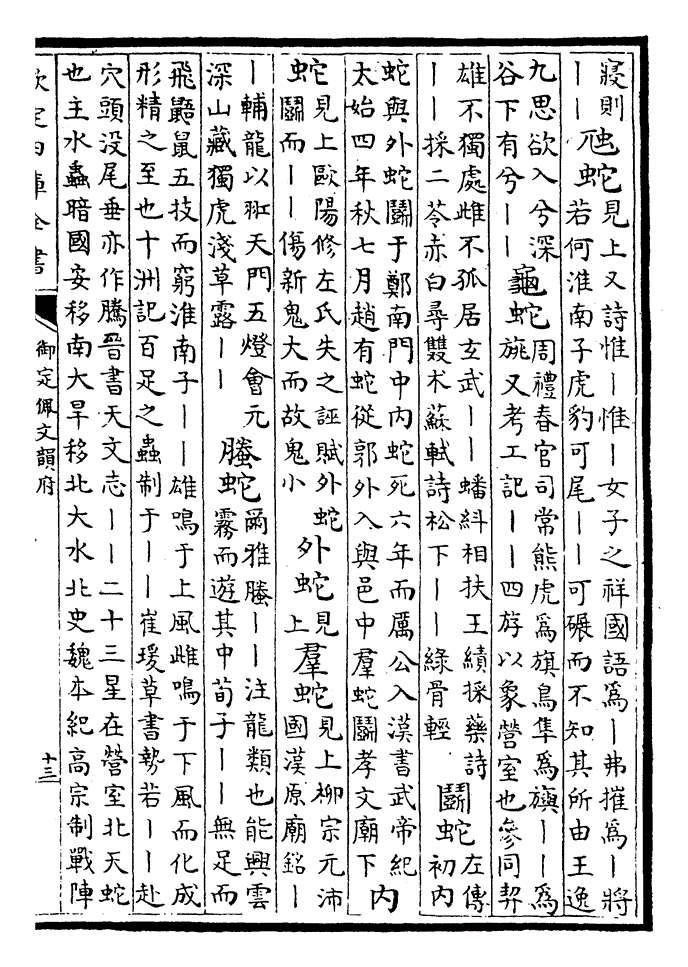 寢則
丨丨
虺蛇
見上又詩惟丨惟丨女子之祥國語為丨弗摧為丨將
若何淮南子虎豹可尾丨丨可碾而不知其所由王逸
九思欲入兮深
谷下有兮丨丨
龜蛇
周禮春官司常熊虎為旗鳥隼為旟丨丨為
旐又考工記丨丨四斿以象營室也參同契
雄不獨處雌不孤居玄武丨丨蟠糾相扶王績採藥詩
丨丨採二苓赤白尋雙术蘇軾詩松下丨丨綠骨輕
鬬蛇
左傳
初內
蛇與外蛇鬬于鄭南門中內蛇死六年而厲公入漢書武帝紀
太始四年秋七月趙有蛇從郭外入與邑中羣蛇鬬孝文廟下
內
蛇
見上歐陽修左氏失之誣賦外蛇
鬬而丨丨傷新鬼大而故鬼小
外蛇
見
上
羣蛇
見上柳宗元沛
國漢原廟銘丨
丨輔龍以翃天門五燈會元
深山藏獨虎淺草露丨丨
螣蛇
爾雅螣丨丨注龍類也能興雲
霧而遊其中荀子丨丨無足而
飛鼯鼠五技而窮淮南子丨丨雄鳴于上風雌鳴于下風而化成
形精之至也十洲記百足之蟲制于丨丨崔瑗草書勢若丨丨赴
穴頭沒尾垂亦作騰晉書天文志丨丨二十三星在營室北天蛇
也主水蟲暗國安移南大旱移北大水北史魏本紀高宗制戰陣
欽定四庫全書
御定佩文韻府
十三